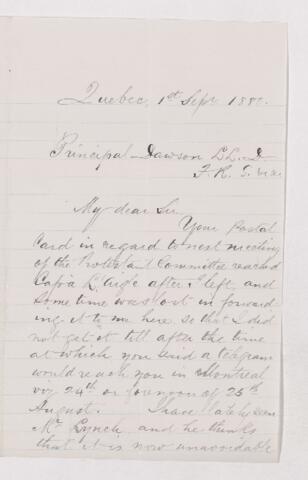 Quebec, 1st Sept 1880.
Principal Dawson LL.D
F.R.S. &c &c
My dear Sir
Your Postal
Card in regard to next meeting
of the Protestant Committee reached
after I left, and
some time was lost in forward
ing it to me here so that I did
not get it till after the time
at which you said a telegram
would reach you in Montreal
viz 24th or forenoon of 25th
August. I have lately seen
Mr Lynch and he thinks
that it is now unavoidable